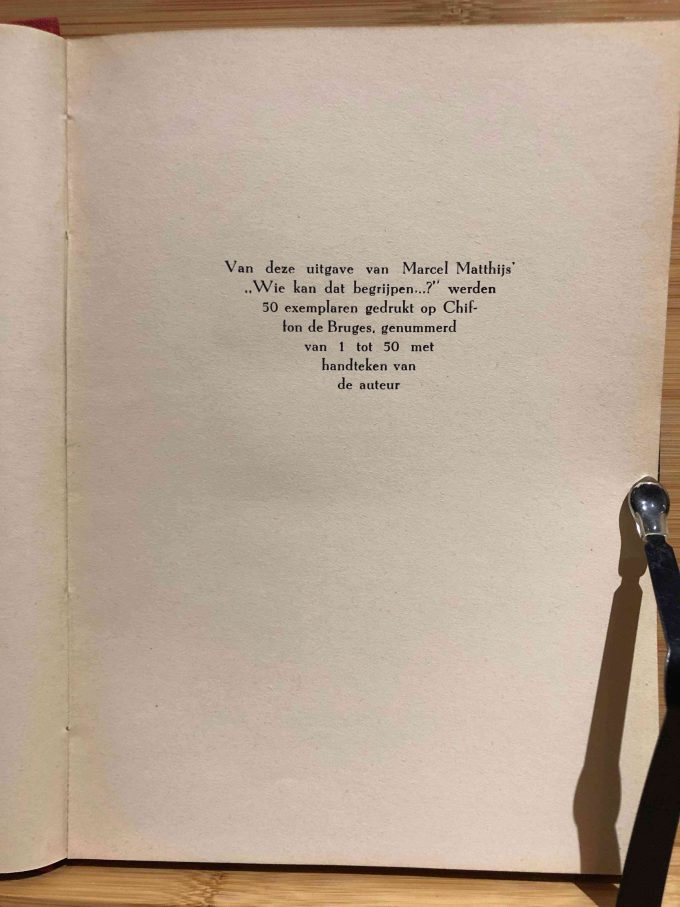 Van deze uitgave van Marcel Matthijs'
„Wie kan dat begrijpen...?” werden
50 exemplaren gedrukt op Chif-
fon de Bruges, genummerd
van 1 tot 50 met
handteken van
de auteur